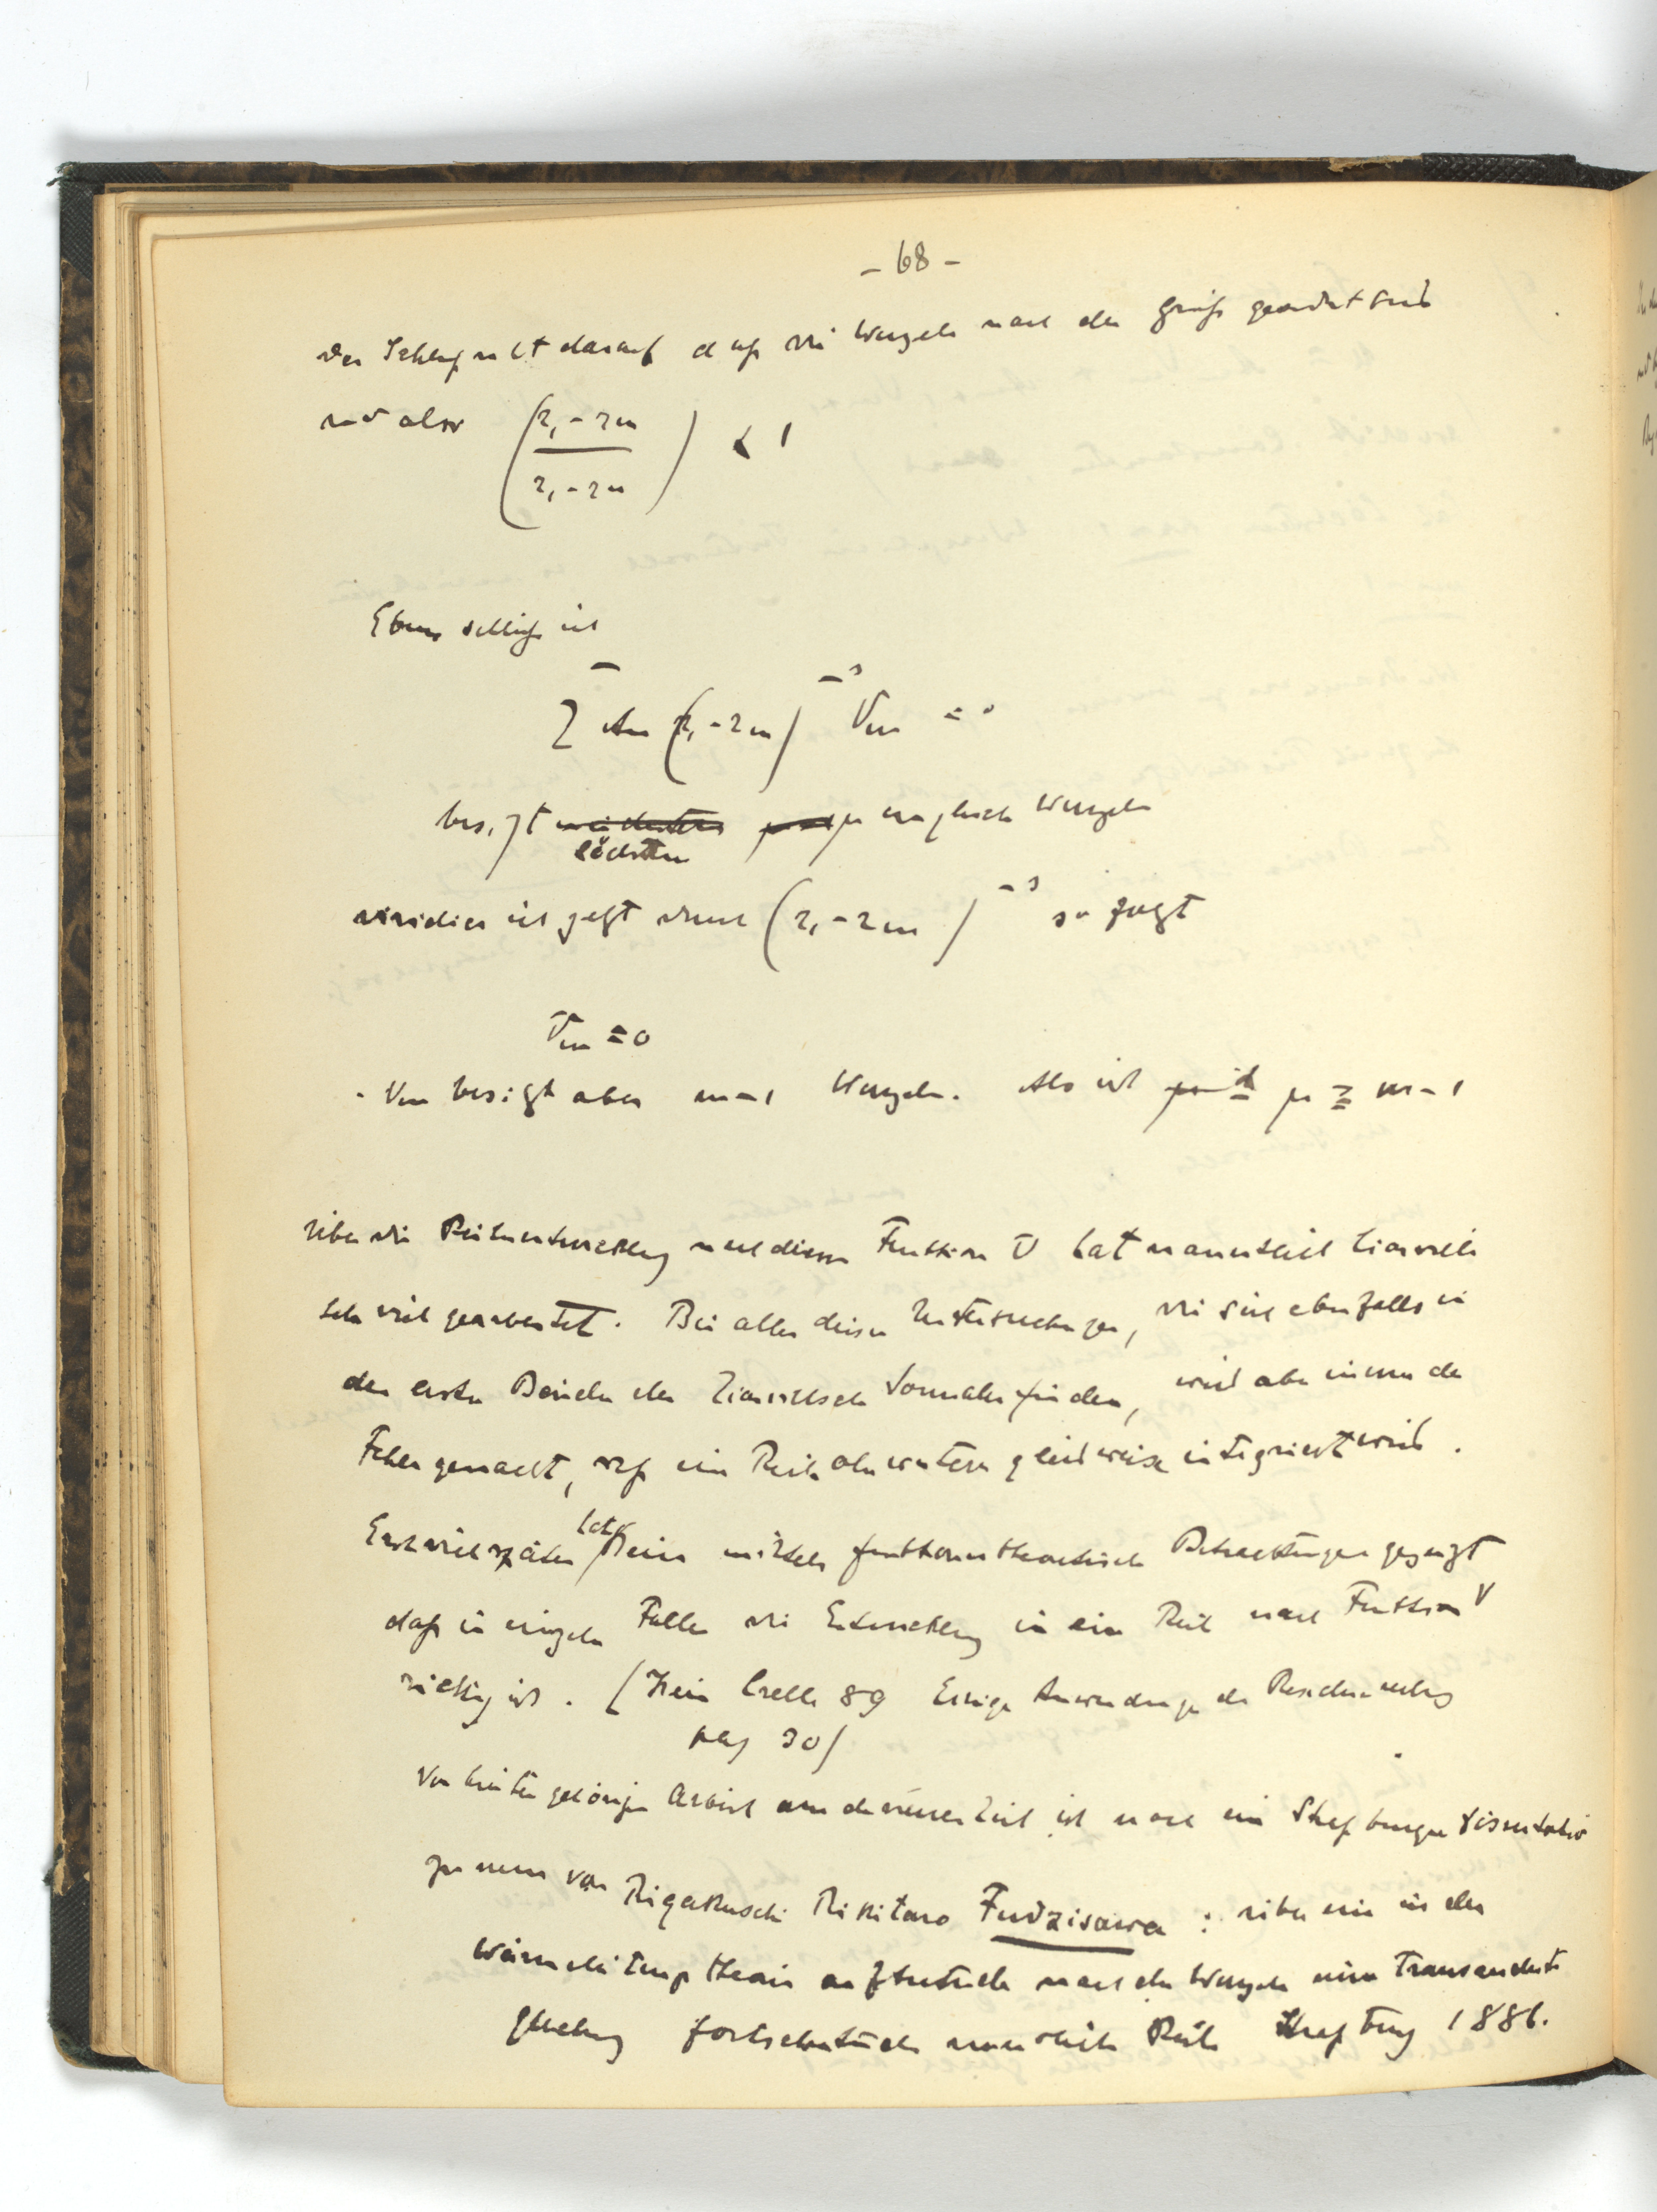 - 68 -
der Schluß ruht darauf daß die Wurzeln nach der Größe geordnet sind
und also (r₁ - rm / r₁ - rn) < 1
Ebenso schließe ich
Σ Am (r₁ - rm)⁻ˢ Vm = 0
besitzt mindestens μ ungleiche Wurzeln
höchstens
dividiere ich jetzt durch (r₁ - rm)⁻ˢ so folgt
Vm = 0
Vm besitzt aber m-1 Wurzeln. Also ist μ ≧ m-1
über die Reihenentwicklung nach diesen Funktionen V hat namentlich Liouville
sehr viel gearbeitet. Bei allen diesen Untersuchungen, die sich ebenfalls in
den ersten Bänden des Liouvilleschen Journales finden, wird aber immer der
Fehler gemacht, daß eine Reihe ohne weiteres gliedweise integriert wird.
Erst viel später hat Heine mittels funktionentheoretischer Betrachtungen gezeigt
daß in einzelnen Fällen die Entwicklung in eine Reihe nach Funktionen V
richtig ist. (Heine Crelle 89 Einige Anwendungen der Residuenrechnung
pag 30)
Von hierher gehörigen Arbeiten aus der neueren Zeit ist noch eine Straßburger Dissertation
zu nennen von Rigakuschi Rikitaro Fudzisawa: über eine in der
Wärmeleitungstheorie auftretende nach den Wurzeln einer transcendenten
Gleichung fortschreitende unendliche Reihe Straßburg 1886.